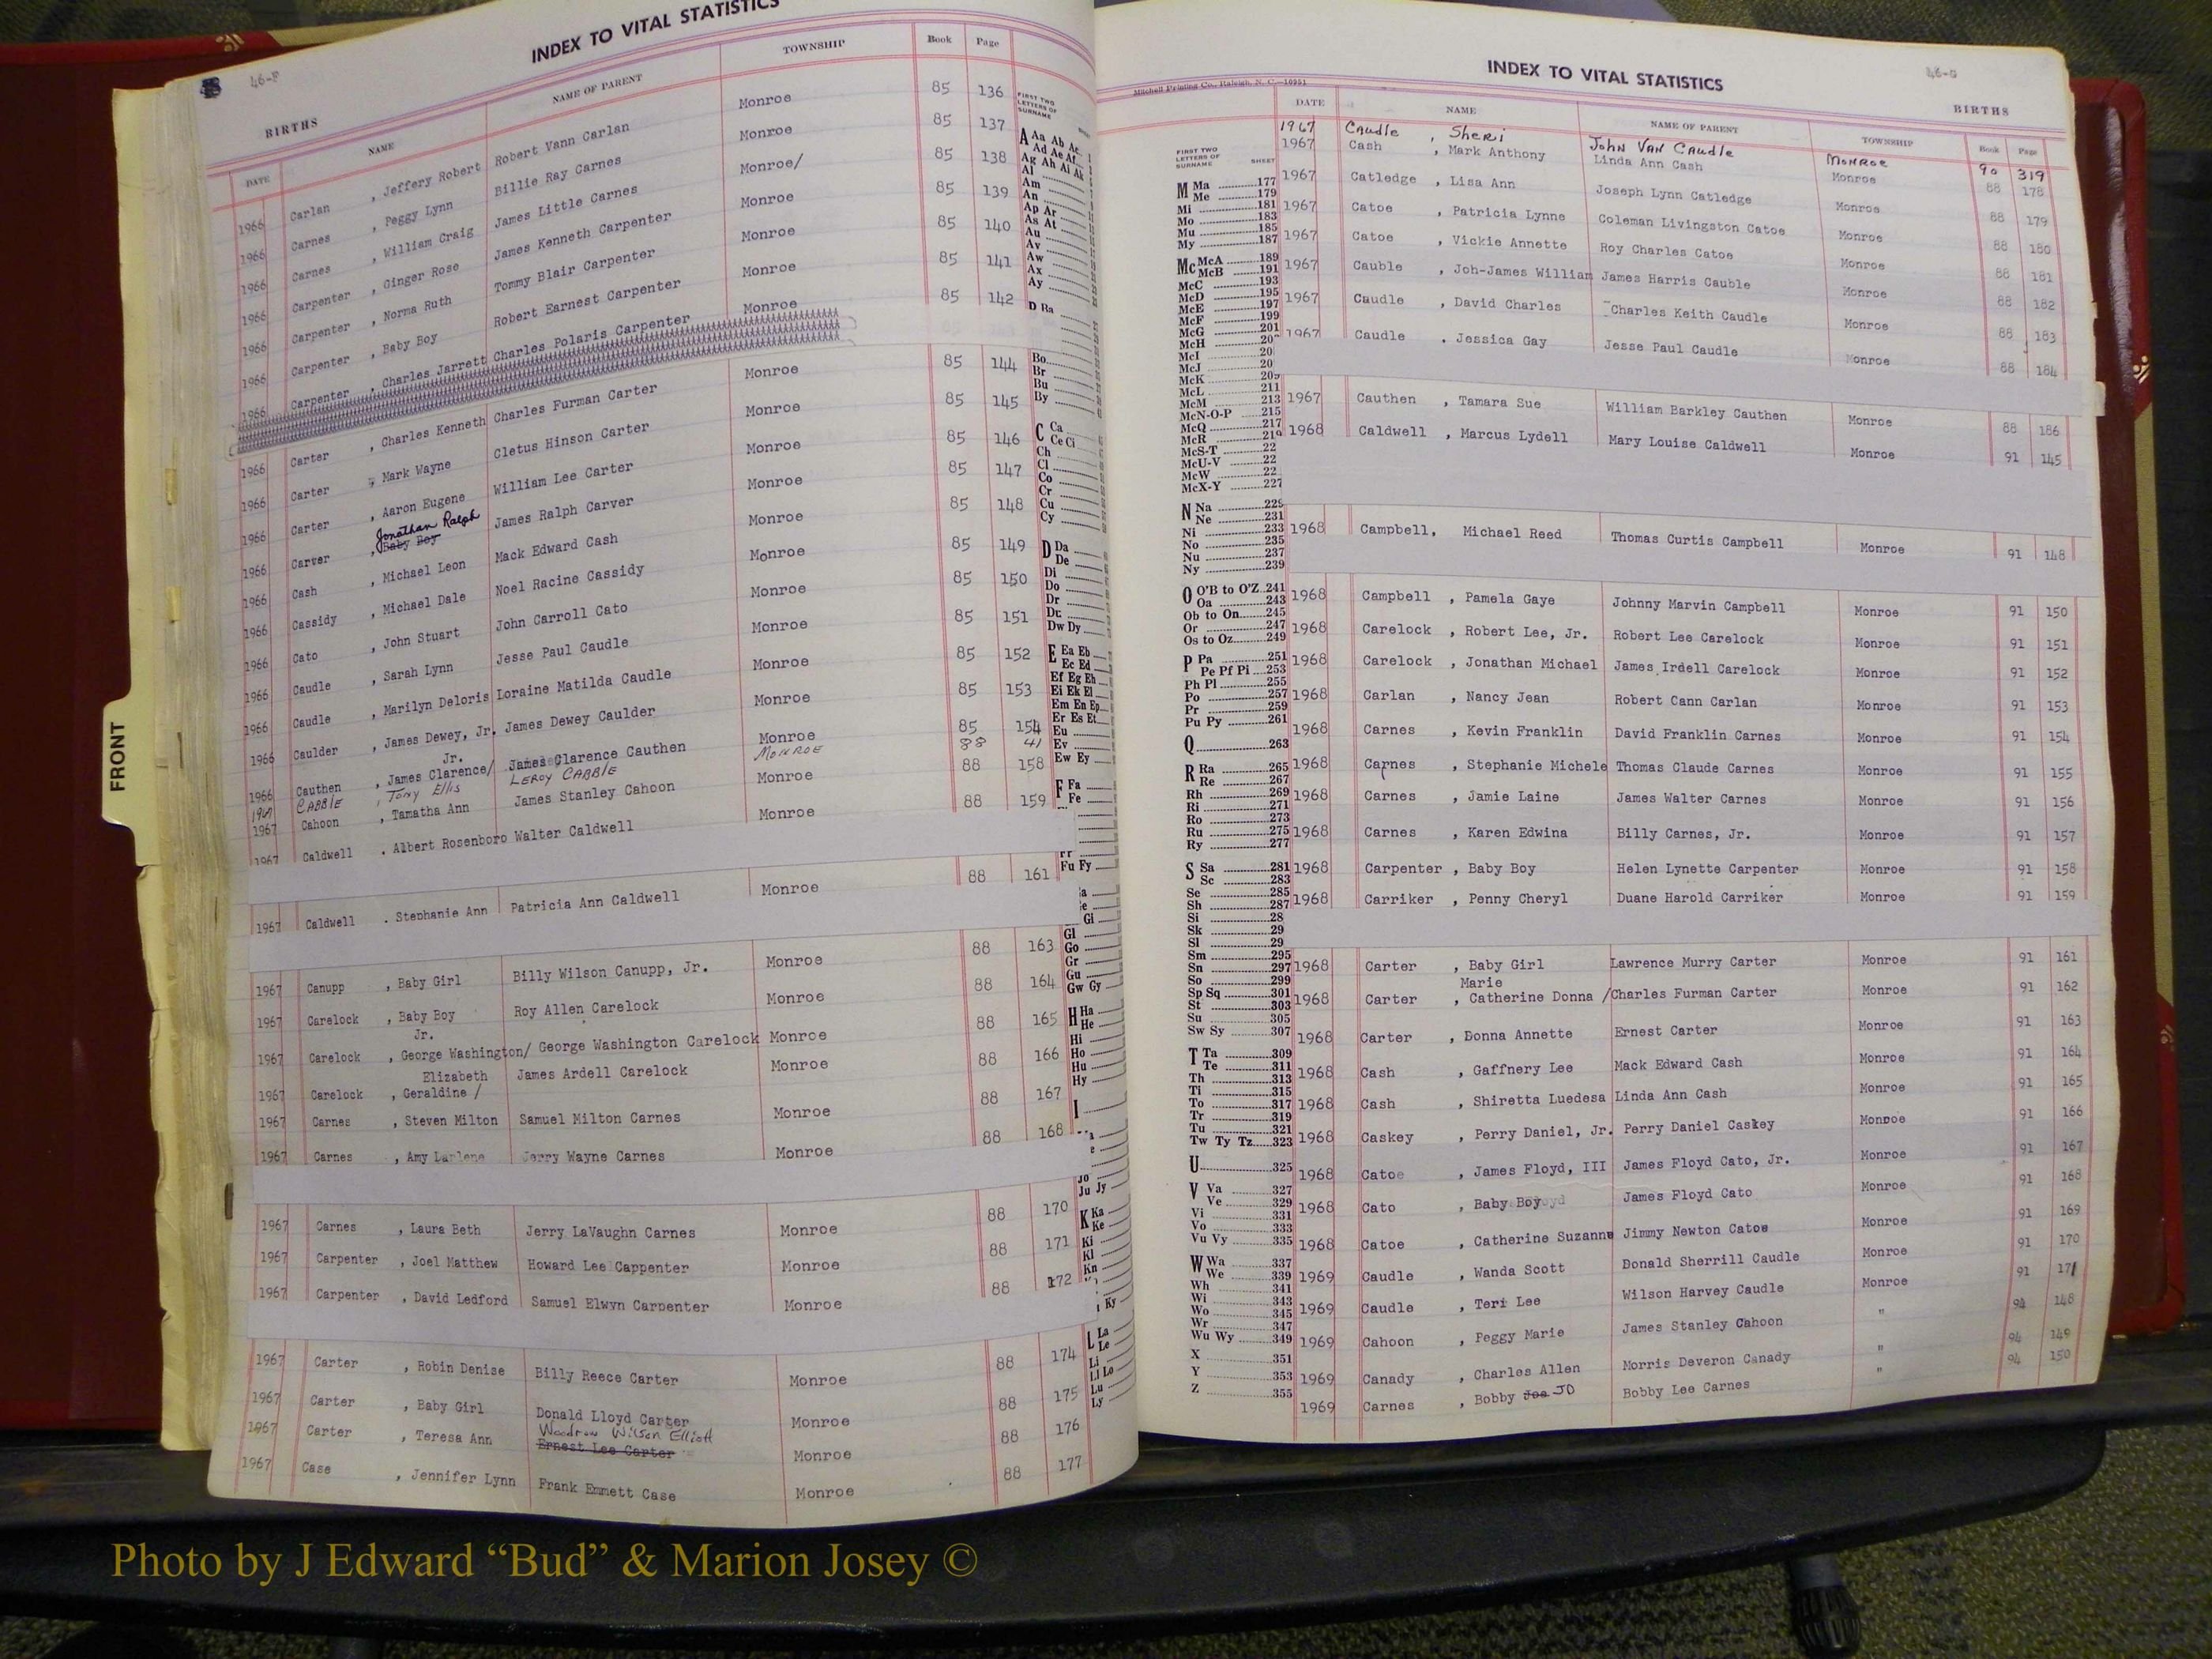 46-F
INDEX TO VITAL STATISTICS
BIRTHS
DATE NAME NAME OF PARENT TOWNSHIP Book Page
1966 Carlan , Jeffery Robert Robert Vann Carlan Monroe 85 136
1966 Carnes , Peggy Lynn Billie Ray Carnes Monroe 85 137
1966 Carnes , William Craig James Little Carnes Monroe/ 85 138
1966 Carpenter , Ginger Rose James Kenneth Carpenter Monroe 85 139
1966 Carpenter , Norma Ruth Tommy Blair Carpenter Monroe 85 140
1966 Carpenter , Baby Boy Robert Earnest Carpenter Monroe 85 141
1966 Carpenter , Charles Jarrett Charles Polaris Carpenter Monroe 85 142
1966 Carter , Charles Kenneth Charles Furman Carter Monroe 85 144
1966 Carter , Mark Wayne Cletus Hinson Carter Monroe 85 145
1966 Carter , Aaron Eugene William Lee Carter Monroe 85 146
Jonathan Ralph
1966 Carver , Baby Boy James Ralph Carver Monroe 85 147
1966 Cash , Michael Leon Mack Edward Cash Monroe 85 148
1966 Cassidy , Michael Dale Noel Racine Cassidy Monroe 85 149
1966 Cato , John Stuart John Carroll Cato Monroe 85 150
1966 Caudle , Sarah Lynn Jesse Paul Caudle Monroe 85 151
1966 Caudle , Marilyn Deloris Loraine Matilda Caudle Monroe 85 152
1966 Caulder , James Dewey, Jr. James Dewey Caulder Monroe 85 153
Jr.
1966 Cauthen , James Clarence/ James Clarence Cauthen Monroe 85 154
1967 CABBLE , Tony Ellis LEROY CABBLE MONROE 88 41
1967 Cahoon , Tamatha Ann James Stanley Cahoon Monroe 88 158
1967 Caldwell . Albert Rosenboro Walter Caldwell Monroe 88 159
1967 Caldwell . Stephanie Ann Patricia Ann Caldwell Monroe 88 161
1967 Canupp , Baby Girl Billy Wilson Canupp, Jr. Monroe 88 163
1967 Carelock , Baby Boy Roy Allen Carelock Monroe 88 164
Jr.
1967 Carelock , George Washington/ George Washington Carelock Monroe 88 165
Elizabeth
1967 Carelock , Geraldine / James Ardell Carelock Monroe 88 166
1967 Carnes , Steven Milton Samuel Milton Carnes Monroe 88 167
1967 Carnes , Amy Darlene Jerry Wayne Carnes Monroe 88 168
1967 Carnes , Laura Beth Jerry LaVaughn Carnes Monroe 88 170
1967 Carpenter , Joel Matthew Howard Lee Cappenter Monroe 88 171
1967 Carpenter , David Ledford Samuel Elwyn Carpenter Monroe 88 172
1967 Carter , Robin Denise Billy Reece Carter Monroe 88 174
1967 Carter , Baby Girl Donald Lloyd Carter Monroe 88 175
Woodrow Wilson Elliott
1967 Carter , Teresa Ann Ernest Lee Carter Monroe 88 176
1967 Case , Jennifer Lynn Frank Emmett Case Monroe 88 177
FRONT
FIRST TWO
LETTERS OF
SURNAME
A Aa Ab Ac
Ad Ae Af
Ag Ah Ai Ak
Al
Am
An
Ap Ar
As At
Au
Av
Aw
Ax
Ay
Bo
Br
Bu
By
C Ca
Ce Ci
Ch
Cl
Co
Cr
Cu
Cy
D Da
De
Di
Do
Dr
Du
Dw Dy
E Ea Eb
Ec Ed
Ef Eg Eh
Ei Ek El
Em En Ep
Er Es Et
Eu
Ev
Ew Ey
F Fa
Fe
Fu Fy
Gi
Gl
Go
Gr
Gu
Gw Gy
H Ha
He
Hi
Ho
Hu
Hy
I
Jo
Ju Jy
K Ka
Ke
Ki
Kl
Kn
Ky
L La
Le
Li
Ll Lo
Lu
Ly
Mitchell Printing Co., Raleigh, N. C.—16951
INDEX TO VITAL STATISTICS
46-G
BIRTHS
DATE NAME NAME OF PARENT TOWNSHIP Book Page
1967 Caudle , Sheri John Van Caudle Monroe 90 319
1967 Cash , Mark Anthony Linda Ann Cash Monroe 88 178
1967 Catledge , Lisa Ann Joseph Lynn Catledge Monroe 88 179
1967 Catoe , Patricia Lynne Coleman Livingston Catoe Monroe 88 180
1967 Catoe , Vickie Annette Roy Charles Catoe Monroe 88 181
1967 Cauble , Joh-James William James Harris Cauble Monroe 88 182
1967 Caudle , David Charles Charles Keith Caudle Monroe 88 183
1967 Caudle , Jessica Gay Jesse Paul Caudle Monroe 88 184
1967 Cauthen , Tamara Sue William Barkley Cauthen Monroe 88 186
1968 Caldwell , Marcus Lydell Mary Louise Caldwell Monroe 91 145
1968 Campbell, Michael Reed Thomas Curtis Campbell Monroe 91 148
1968 Campbell , Pamela Gaye Johnny Marvin Campbell Monroe 91 150
1968 Carelock , Robert Lee, Jr. Robert Lee Carelock Monroe 91 151
1968 Carelock , Jonathan Michael James Irdell Carelock Monroe 91 152
1968 Carlan , Nancy Jean Robert Cann Carlan Monroe 91 153
1968 Carnes , Kevin Franklin David Franklin Carnes Monroe 91 154
1968 Carnes , Stephanie Michele Thomas Claude Carnes Monroe 91 155
1968 Carnes , Jamie Laine James Walter Carnes Monroe 91 156
1968 Carnes , Karen Edwina Billy Carnes, Jr. Monroe 91 157
1968 Carpenter , Baby Boy Helen Lynette Carpenter Monroe 91 158
1968 Carriker , Penny Cheryl Duane Harold Carriker Monroe 91 159
1968 Carter , Baby Girl Lawrence Murry Carter Monroe 91 161
Marie
1968 Carter , Catherine Donna /Charles Furman Carter Monroe 91 162
1968 Carter , Donna Annette Ernest Carter Monroe 91 163
1968 Cash , Gaffnery Lee Mack Edward Cash Monroe 91 164
1968 Cash , Shiretta Luedesa Linda Ann Cash Monroe 91 165
1968 Caskey , Perry Daniel, Jr. Perry Daniel Caskey Monroe 91 166
1968 Catoe , James Floyd, III James Floyd Cato, Jr. Monroe 91 167
1968 Cato , Baby Boy James Floyd Cato Monroe 91 168
1968 Catoe , Catherine Suzanne Jimmy Newton Catoe Monroe 91 169
1969 Caudle , Wanda Scott Donald Sherrill Caudle Monroe 91 170
1969 Caudle , Teri Lee Wilson Harvey Caudle Monroe 91 171
1969 Cahoon , Peggy Marie James Stanley Cahoon " 94 148
1969 Canady , Charles Allen Morris Deveron Canady " 94 149
1969 Carnes , Bobby Joe JO Bobby Lee Carnes " 94 150
FIRST TWO
LETTERS OF
SURNAME SHEET
M Ma 177
Me 179
Mi 181
Mo 183
Mu 185
My 187
Mc McA 189
McB 191
McC 193
McD 195
McE 197
McF 199
McG 201
McH 20
McI 20
McJ 20
McK 209
McL 211
McM 213
McN-O-P 215
McQ 217
McR 219
McS-T 22
McU-V 22
McW 22
McX-Y 227
N Na 229
Ne 231
Ni 233
No 235
Nu 237
Ny 239
O O'B to O'Z 241
Oa 243
Ob to On 245
Or 247
Os to Oz 249
P Pa 251
Pe Pf Pi 253
Ph Pl 255
Po 257
Pr 259
Pu Py 261
Q 263
R Ra 265
Re 267
Rh 269
Ri 271
Ro 273
Ru 275
Ry 277
S Sa 281
Sc 283
Se 285
Sh 287
Si 28
Sk 29
Sl 29
Sm 295
Sn 297
So 299
Sp Sq 301
St 303
Su 305
Sw Sy 307
T Ta 309
Te 311
Th 313
Ti 315
To 317
Tr 319
Tu 321
Tw Ty Tz 323
U 325
V Va 327
Ve 329
Vi 331
Vo 333
Vu Vy 335
W Wa 337
We 339
Wh 341
Wi 343
Wo 345
Wr 347
Wu Wy 349
X 351
Y 353
Z 355
Photo by J Edward “Bud” & Marion Josey ©